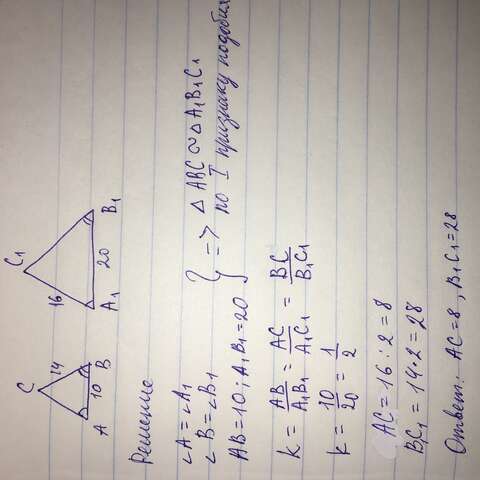 C C₁
14 16
A 10 B A₁ 20 B₁
Решение
∠A = ∠A₁
∠B = ∠B₁
AB = 10 ; A₁B₁ = 20
} => △ ABC ∾ △ A₁B₁C₁
по I признаку подобия
k = AB/A₁B₁ = AC/A₁C₁ = BC/B₁C₁
k = 10/20 = 1/2
AC = 16 : 2 = 8
B₁C₁ = 14 • 2 = 28
Ответ: AC = 8 , B₁C₁ = 28